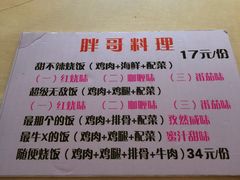 胖哥料理
17元/份
甜不辣烧饭（鸡肉+海鲜+配菜）
（一）红烧味 （二）咖喱味 （三）番茄味
超级无敌饭（鸡肉+鸡腿+配菜）
（一）红烧味 （二）咖喱味 （三）番茄味
最那个的饭（鸡肉+排骨+配菜）孜然咸味
最牛X的饭（鸡肉+鸡腿+配菜）蜜汁甜味
随便烧饭（鸡肉+鸡腿+排骨+牛肉）34元/份